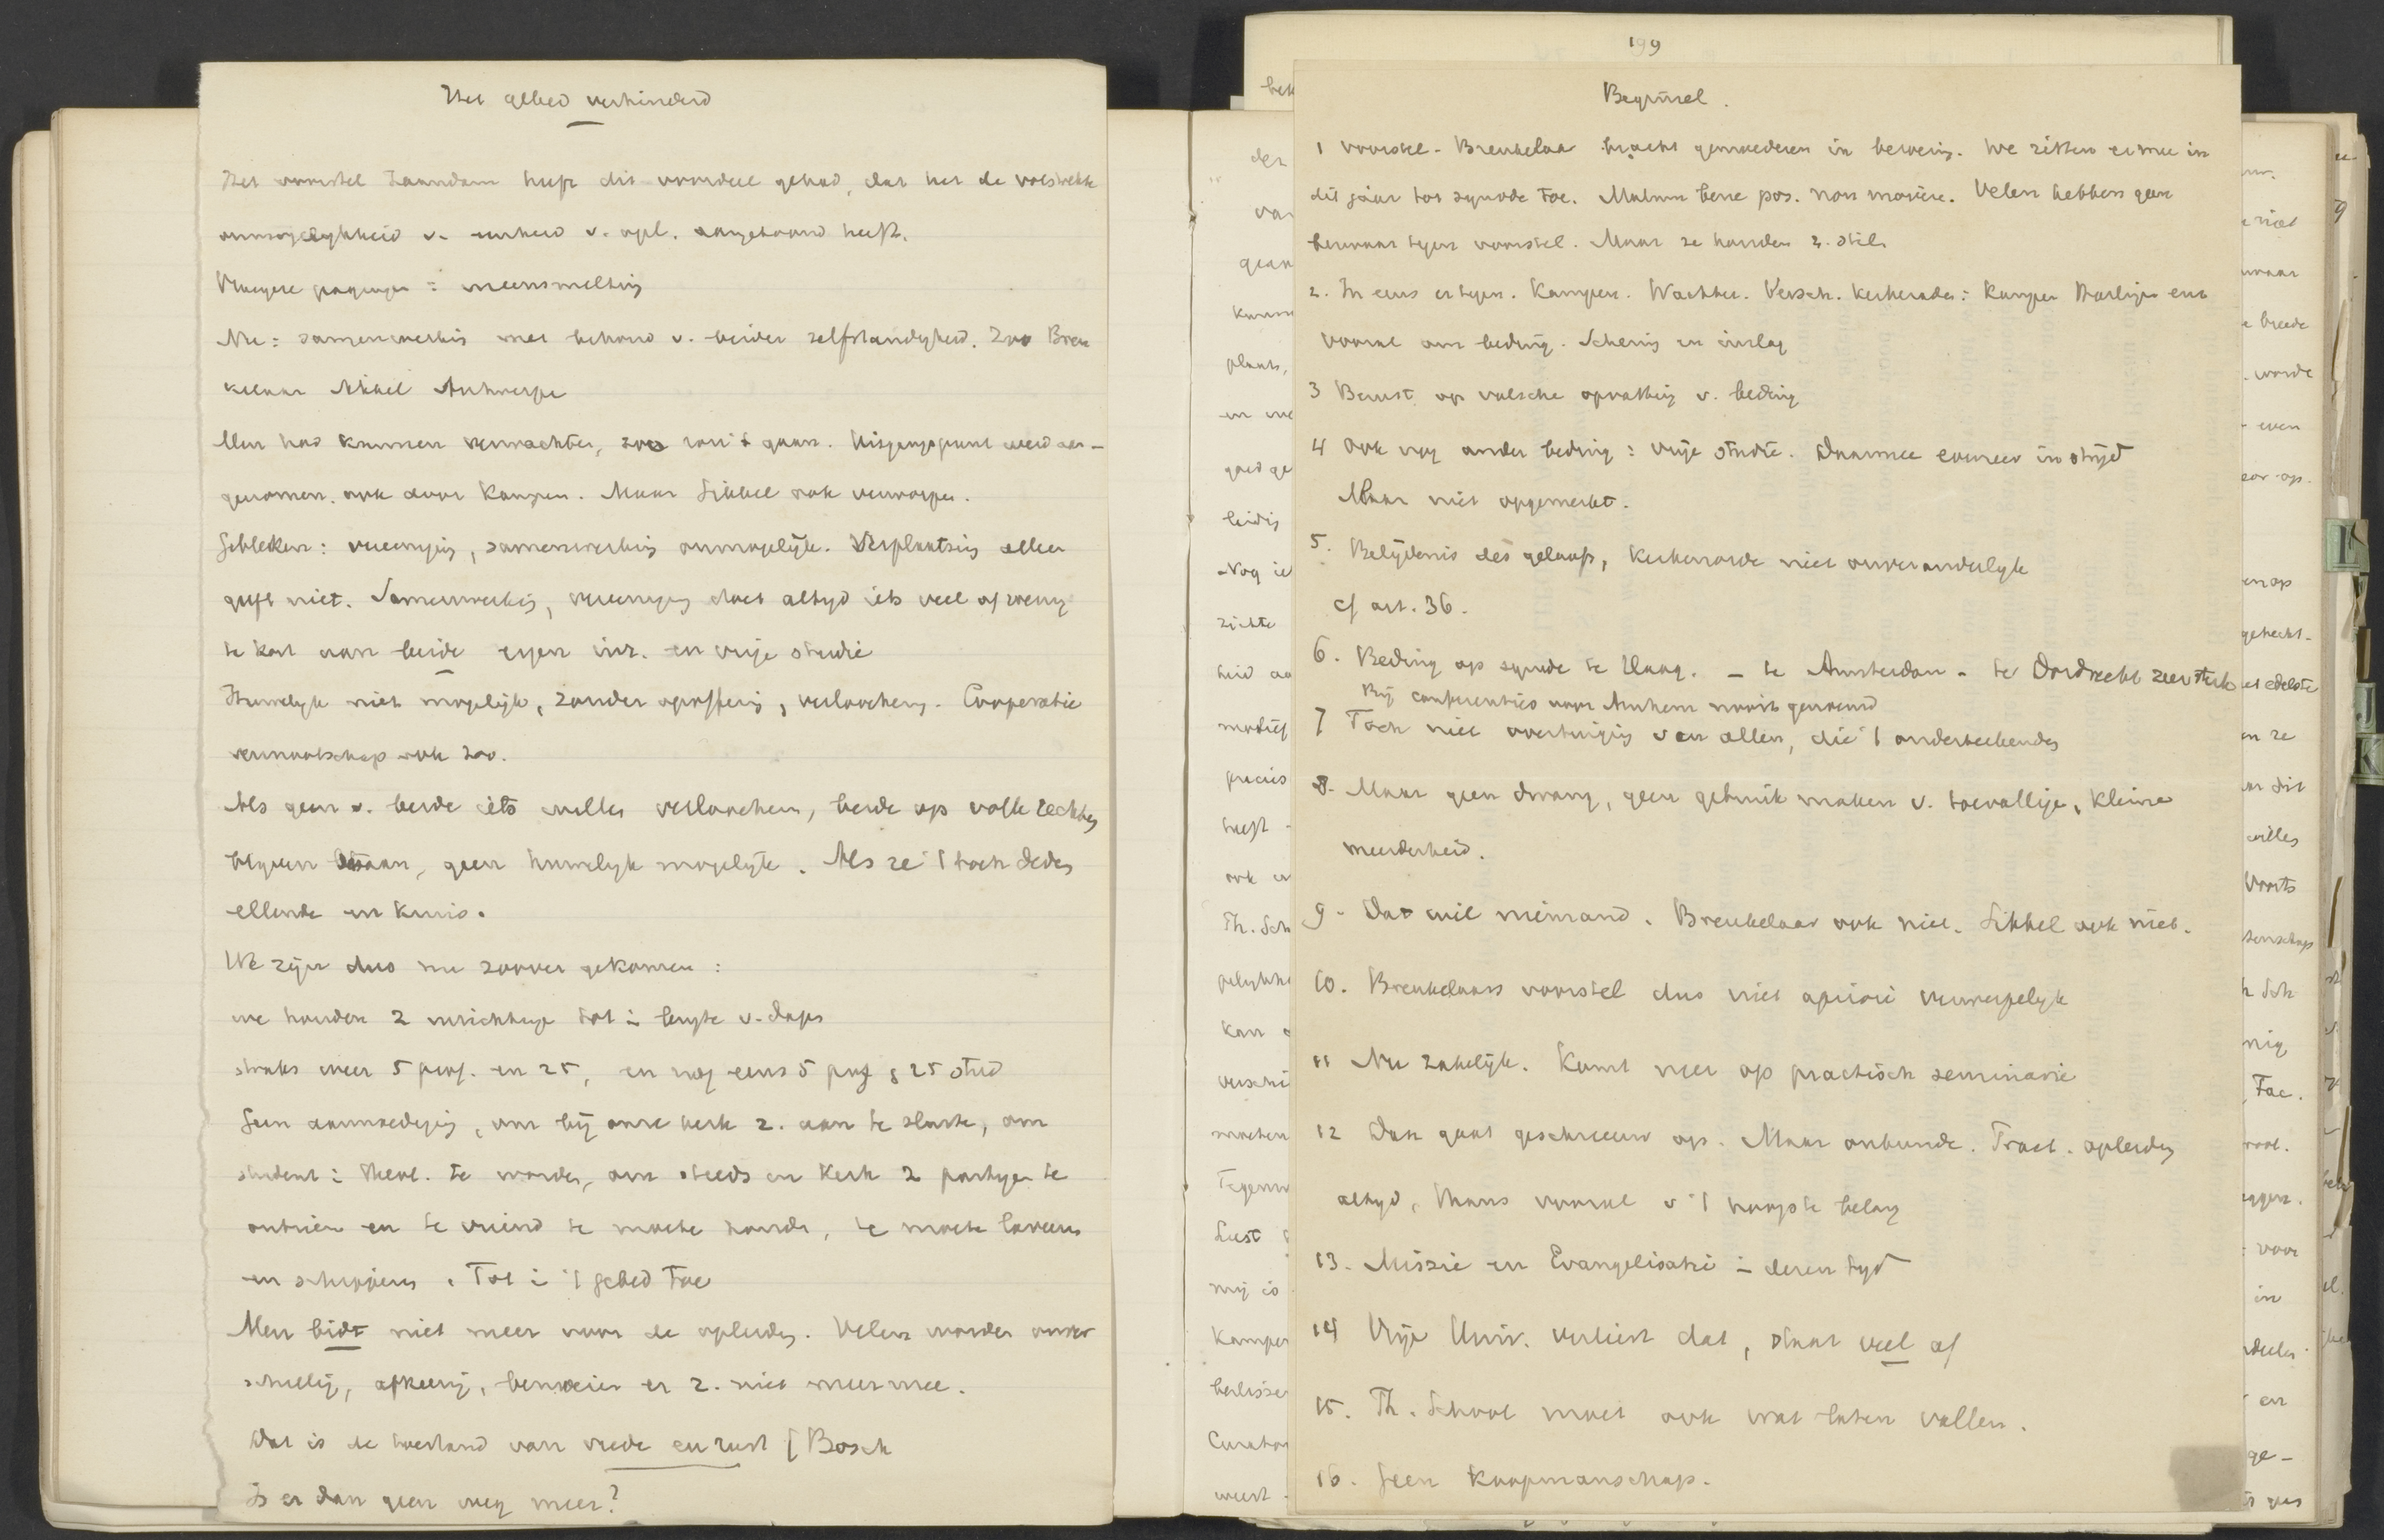 Het gebed verhinderd
Het voorstel Zaandam heeft dit voordeel gehad, dat het de volstrekte
onmogelijkheid v. eenheid v. opl. aangetoond heeft.
Vroegere pogingen : ineensmelting
Nu : samenwerking met behoud v. beider zelfstandigheid. Zoo Breu
kelaar Sikkel Antwerpe
Men had kunnen verwachten, zoo zou 't gaan. Uitgangspunt werd aan-
genomen. ook door Kampen. Maar Sikkel ook verworpen.
Gebleken : vereeniging, samenwerking onmogelijk. Verplaatsing alleen
geeft niet. Samenwerking, vereeniging doet altijd iets veel of weinig
te kort aan beide eigen inr. en vrije studie
Huwelijk niet mogelijk, zonder opoffering, verloochening. Cooperatie
vennootschap ook zoo.
Als geen v. beide iets willen verloochenen, beide op volle rechten
blijven staan, geen huwelijk mogelijk. Als ze 't toch deden
ellende en kruis.
We zijn dus nu zoover gekomen :
we houden 2 inrichtingen tot in lengte v. dagen
straks weer 5 prof. en 25, en nog eens 5 prof & 25 stud
Geen aanmoediging, om bij onze kerk z. aan te sluiten, om
student in theol. te worden, om steeds en kerk 2 partijen te
ontzien en te vriend te moeten houden, te moeten laveeren
en schipperen. Tot in 't gebed toe
Men bidt niet meer voor de opleiding. Velen worden onver
schillig, afkeerig, bemoeien er z. niet meer mee.
Dat is de toestand van vrede en rust [Bosch
Is er dan geen weg meer?
199
Beginsel.
1 voorstel-Breukelaar bracht gemoederen in beweging. We zitten er mee in
dit jaar tot synode toe. Malum bene pos. non movere. Velen hebben geen
bezwaar tegen voorstel. Maar ze houden z. stil
2. In eens er tegen. Kampen. Wachter. Versch. kerkeraden : Kampen Harlingen enz
vooral om beding. Schering en inslag
3 Berust op valsche opvatting v. beding
4 Ook nog ander beding : vrije studie. Daarmee evenzeer in strijd
Maar niet opgemerkt.
5. Belijdenis des geloofs, kerkenorde niet onveranderlijk
cf art. 36.
6. Beding op synode te Haag. - te Amsterdam - te Dordrecht zeer sterk
Bij conferenties voor Arnhem nooit genoemd
7 Toch niet overtuiging van allen, die 't onderteekenden
8. Maar geen dwang, geen gebruik maken v. toevallige, kleine
meerderheid.
9. Dat wil niemand. Breukelaar ook niet. Sikkel ook niet.
10. Breukelaars voorstel dus niet apriori verwerpelijk
11 Nu zakelijk. Komt neer op practisch seminarie
12 Dan gaat geschreeuw op. Maar onkunde. Pract. opleiding
altijd, thans vooral v 't hoogste belang
13. Missie en Evangelisatie in dezen tijd
14 Vrije Univ. verliest dat, staat veel af
15. Th. School moet ook wat laten vallen.
16. Geen koopmanschap.